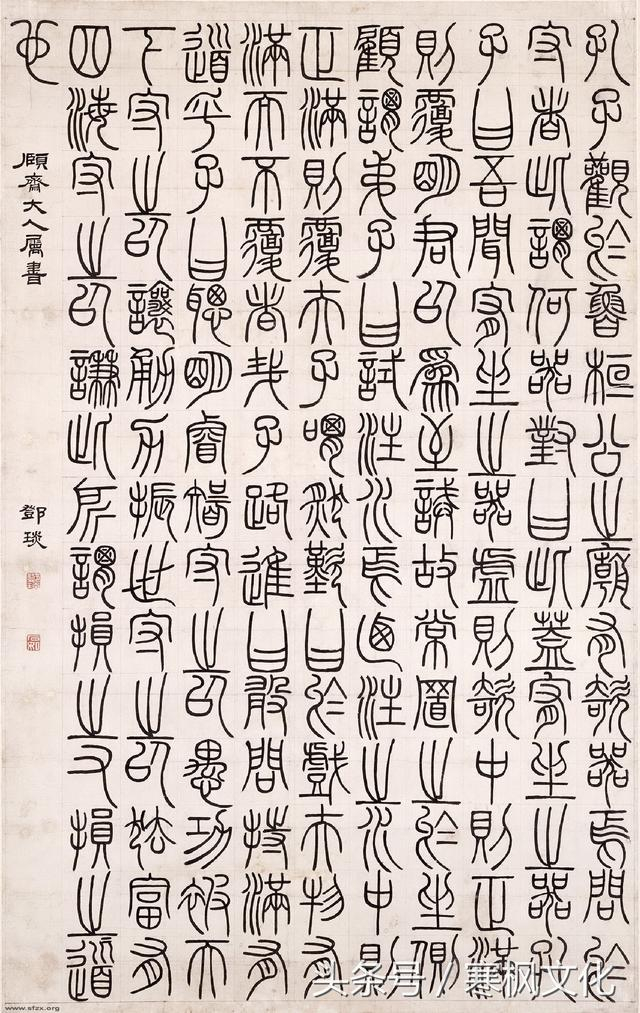 孔子觀於魯桓公之廟有欹器焉問於
守者此謂何器對曰此蓋宥坐之器孔
子曰吾聞宥坐之器虛則欹中則正滿
則覆明君以爲至誡故常置之於坐側
顧謂弟子曰試注水焉乃注之水中則
正滿則覆夫子喟然歎曰於戲夫物有
滿而不覆者哉子路進曰敢問持滿有
道乎子曰聰明睿智守之以愚功被天
下守之以讓勇力振世守之以怯富有
四海守之以謙此所謂損之又損之道
也
頤齋大人属書
鄧琰
头条号／寒枫文化
www.sfzx.org